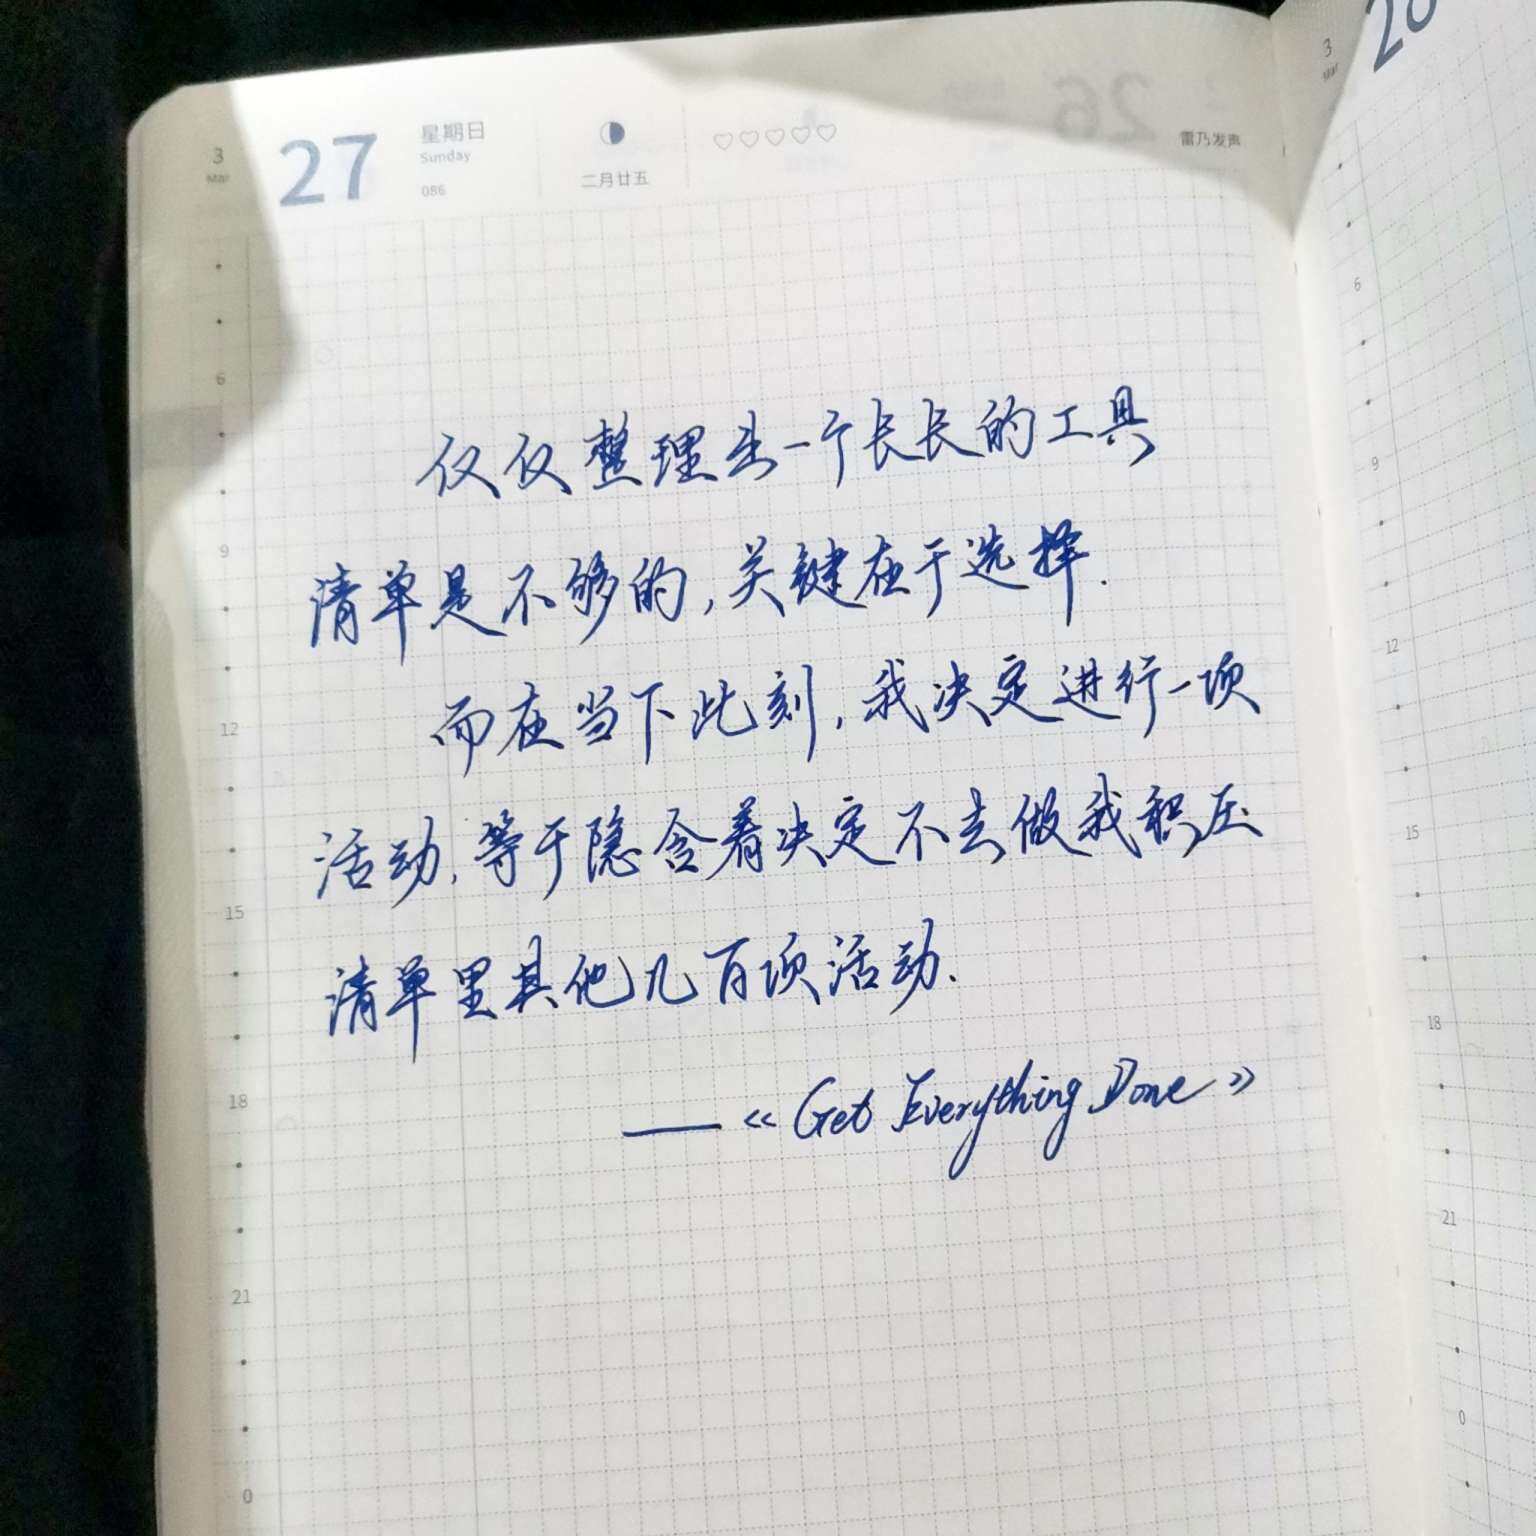 3
Mar
27
星期日
Sunday
086
二月廿五
♡♡♡♡♡
雷乃发声
仅仅整理出一个长长的工具
清单是不够的,关键在于选择.
而在当下此刻,我决定进行一项
活动,等于隐含着决定不去做我积压
清单里其他几百项活动.
——《Get Everything Done》
6
9
12
15
18
21
0
3
Mar
28
6
9
12
15
18
21
0